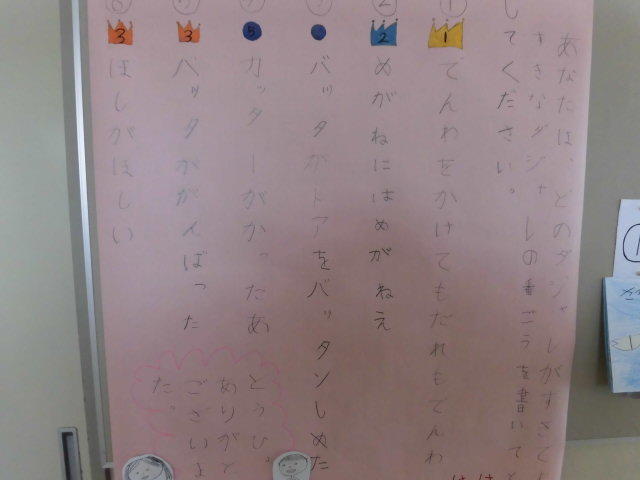 あなたは、どのダジャレがすきです
すきなダジャレの番ごうを書いて
してください。
① 1 でんわをかけてもだれもでんわ
② 2 めがねにはめがねえ
バッタがドアをバッタンしめた
5 カッターがかったあ
3 バッタががんばった
3 ほしがほしい
とうひょう
ありがと
ございまし
た。